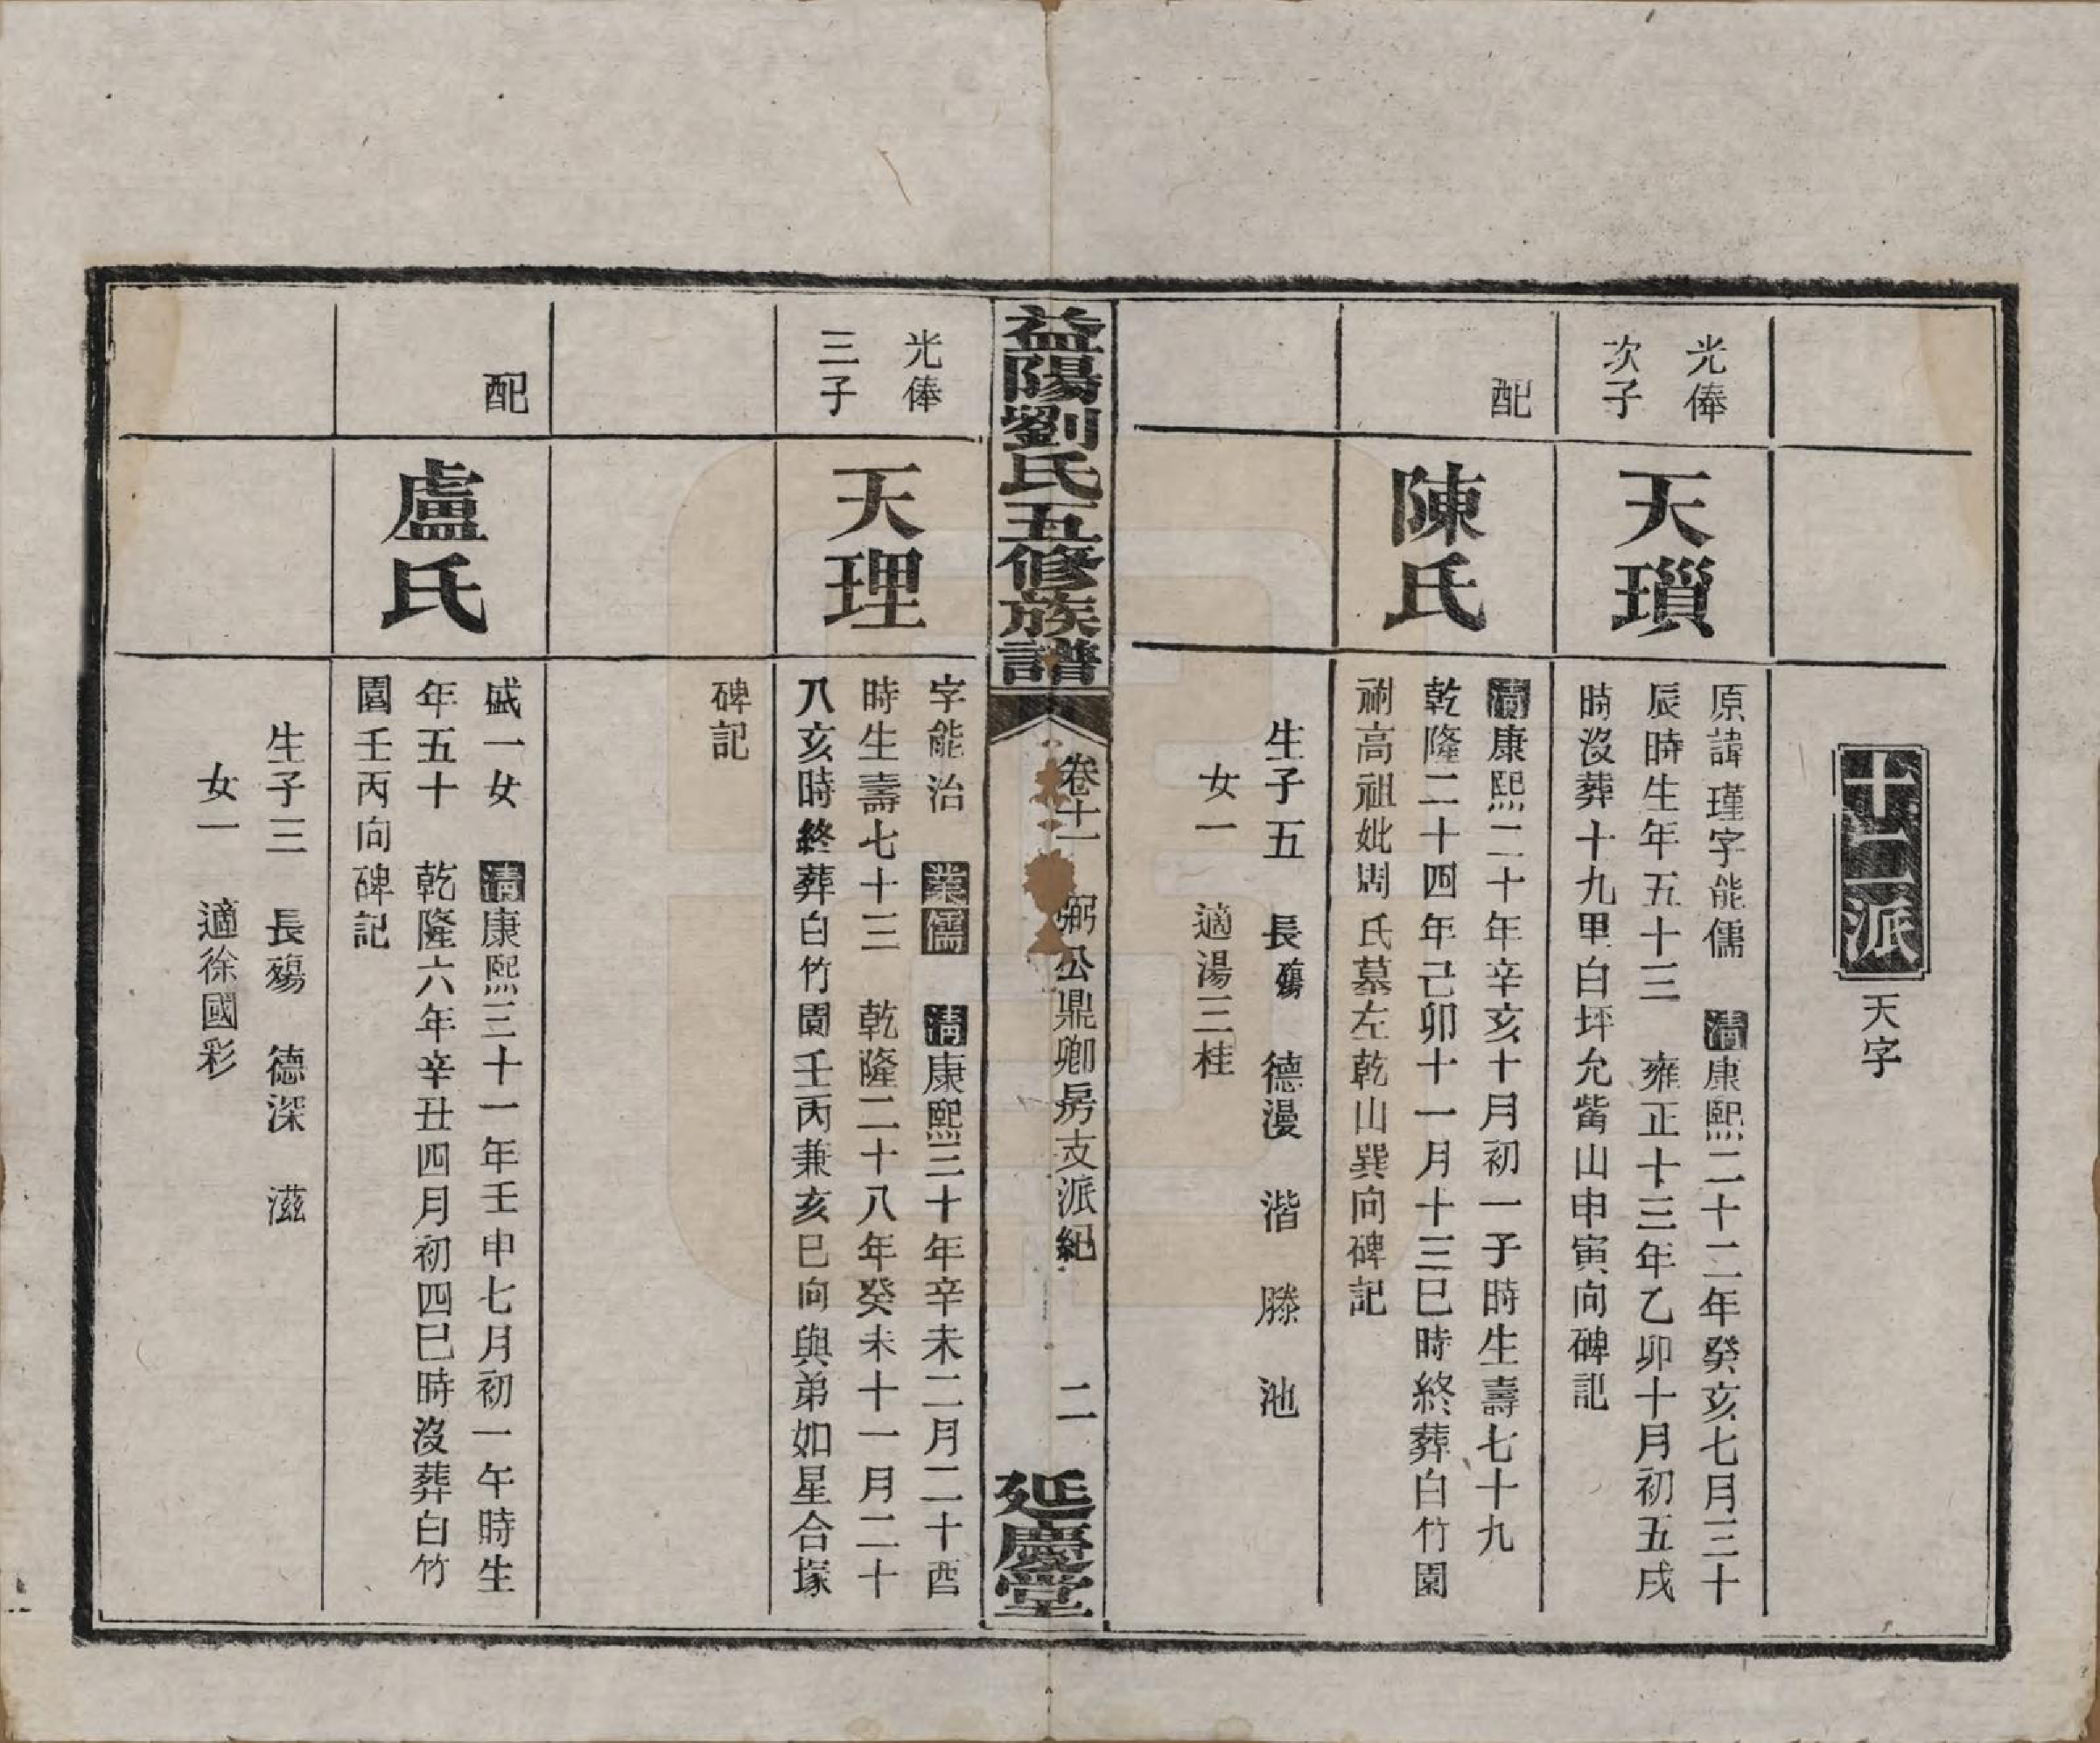 十二派
天字
光俸
次子
天瑣
原諱瑾字能儒　清康熙二十二年癸亥七月三十
辰時生年五十三　雍正十三年乙卯十月初五戌
時沒葬十九里白坪允喾山申寅向碑記
配
陳氏
清康熙二十年辛亥十月初一子時生壽七十九
乾隆二十四年己卯十一月十三巳時終葬白竹園
祔高祖妣周氏墓左乾山巽向碑記
生子五　長殤　德漫　湝　滕　池
女一　適湯三桂
益陽劉氏五修族譜
卷十一　弼公鼎卿房支派紀　二
延慶堂
光俸
三子
天理
字能治　業儒　清康熙三十年辛未二月二十酉
時生壽七十三　乾隆二十八年癸未十一月二十
八亥時終葬白竹園壬丙兼亥巳向與弟如星合塚
碑記
配
盧氏
戚一女　清康熙三十一年壬申七月初一午時生
年五十　乾隆六年辛丑四月初四巳時沒葬白竹
園壬丙向碑記
生子三　長殤　德深　滋
女一　適徐國彩